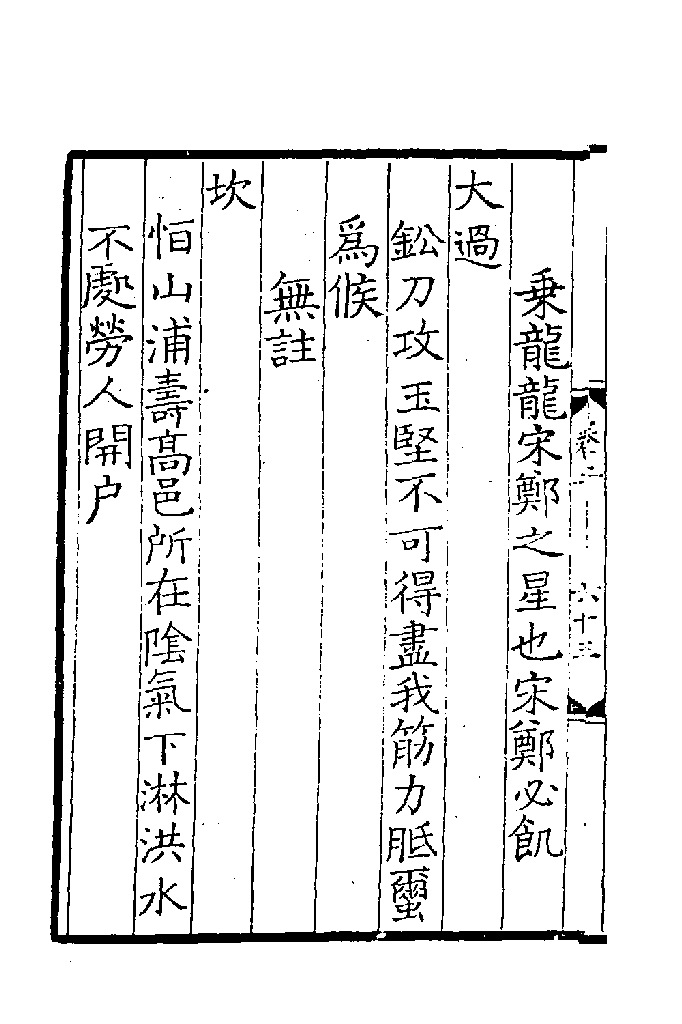 乗龍龍宋鄭之星也宋鄭必飢
大過
鈆刀攻玉堅不可得盡我筋力胝𮠕
爲候
無註
坎
恒山浦壽高邑所在陰氣下淋洪水
不處勞人開户
卷二
六十三